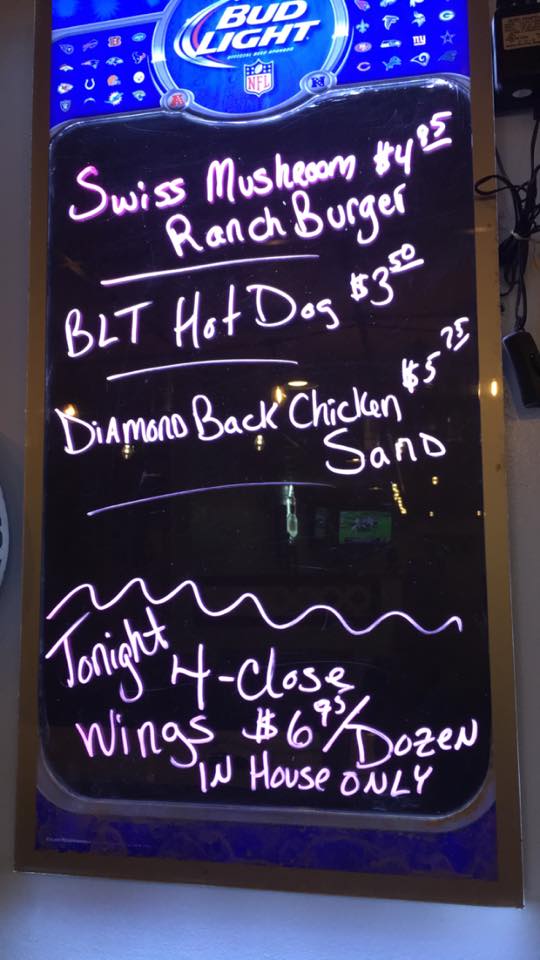 BUD
LIGHT
NFL
Swiss Mushroom $4.95
Ranch Burger
BLT Hot Dog $3.50
Diamond Back Chicken $5.75
Sand
Tonight
4-Close
Wings $6.95/Dozen
IN House ONLY